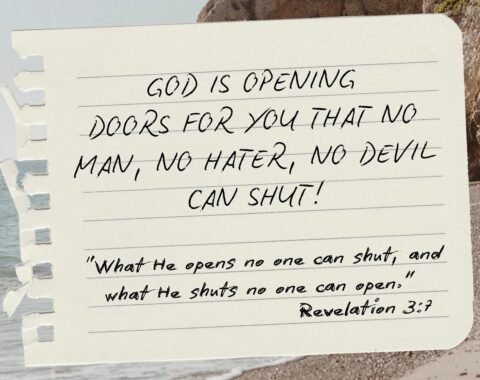 GOD IS OPENING
DOORS FOR YOU THAT NO
MAN, NO HATER, NO DEVIL
CAN SHUT!
"What He opens no one can shut, and
what He shuts no one can open."
Revelation 3:7